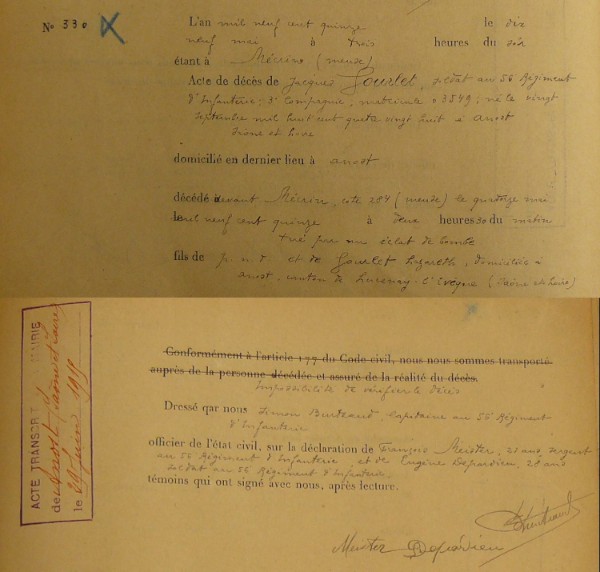 N° 330
L'an mil neuf cent quinze le dix
neuf mai à trois heures du soir
étant à Mécrin (meuse)
Acte de décès de Jacques Gourlet, soldat au 56 Régiment
d'Infanterie, 3e Compagnie, matricule 03549; né le vingt
septembre mil huit cent quatre vingt huit à anost
Saône et Loire
domicilié en dernier lieu à anost
décédé devant Mécrin, cote 284 (meuse) le quatorze mai
mil neuf cent quinze à deux heures 30 du matin
tué par un éclat de bombe
fils de p. n. d. et de Gourlet Lazareth, domiciliée à
anost, canton de Lucenay-l'évêque (Saône et Loire)
Conformément à l'article 177 du Code civil, nous nous sommes transporté
auprès de la personne décédée et assuré de la réalité du décès.
Impossibilité de vérifier le décès
Dressé par nous Simon Burteaud, Capitaine au 56 Régiment
d'Infanterie
officier de l'état civil, sur la déclaration de François Meister, 21 ans, sergent
au 56 Régiment d'Infanterie et de Eugène Depardieu, 28 ans
soldat au 56 Régiment d'Infanterie
témoins qui ont signé avec nous, après lecture.
Meister Depardieu
ACTE TRANSCRIT MAIRIE
de Anost, Saône et Loire
le 29 juin 1915